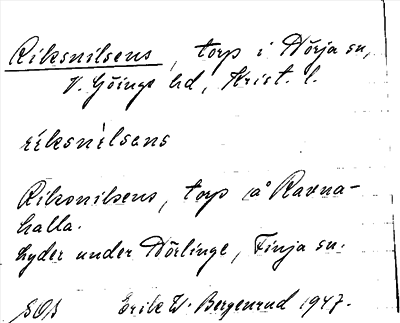 Riksnilsens, torp i Nörja sn,
V. Göinge hd, Krist. l.
rìksnìlsens
Riksnilsens, torp å Ravna-
halla.
Lyder under Mörlinge, Finja sn.
SOB Erik W. Bergenrud 1947.